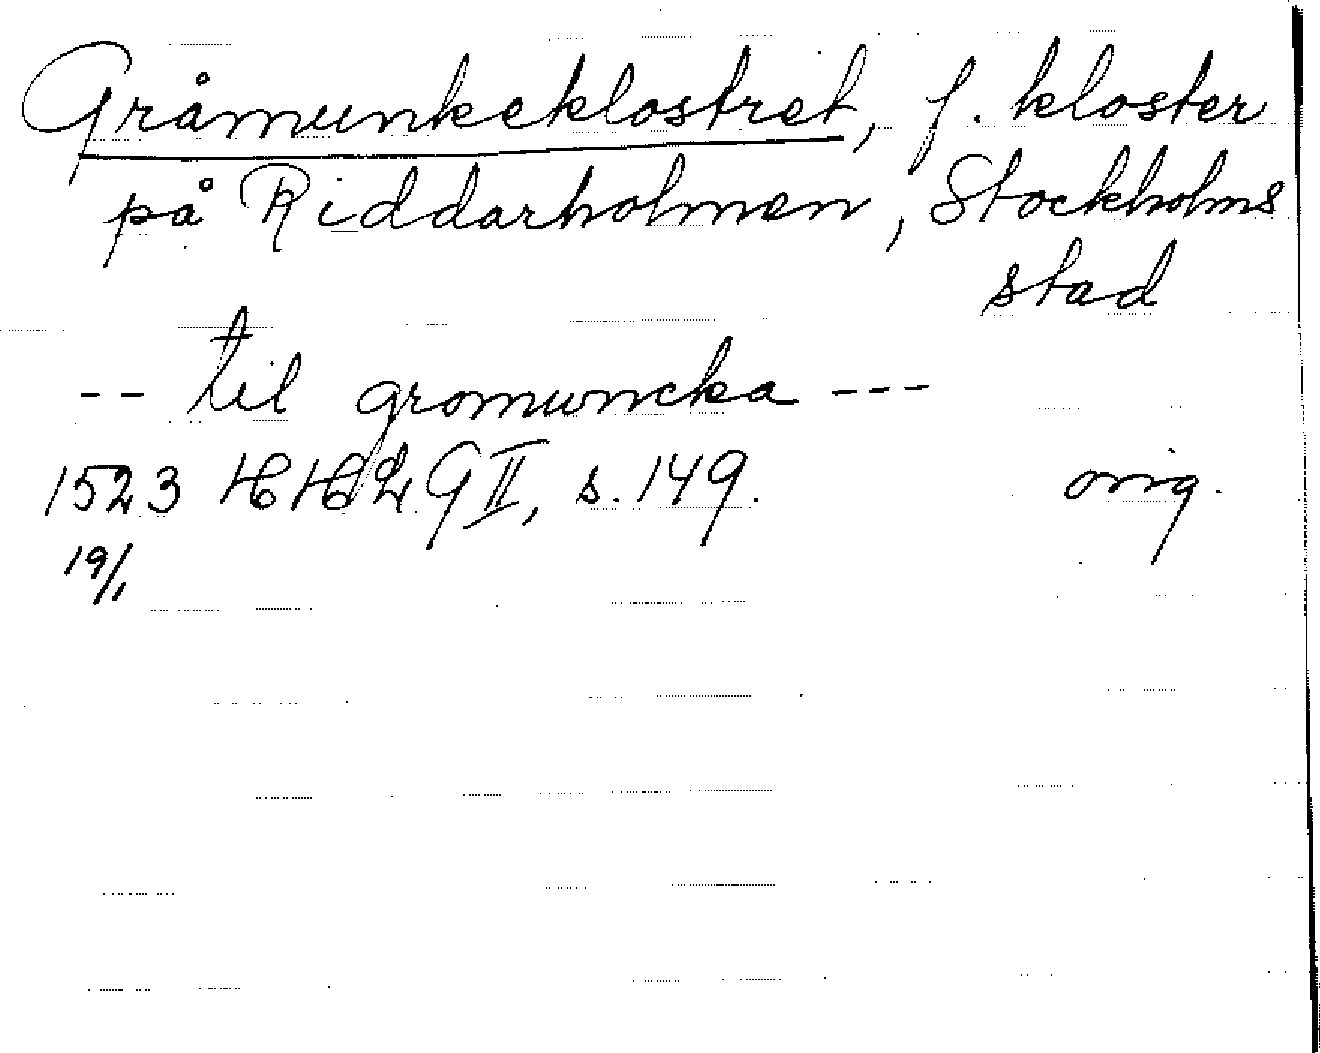 Gråmunkeklostret, f. kloster
på Riddarholmen, Stockholms
stad
-- til gromuncka ---
1523 HHLG II, s. 149. orig.
19/1